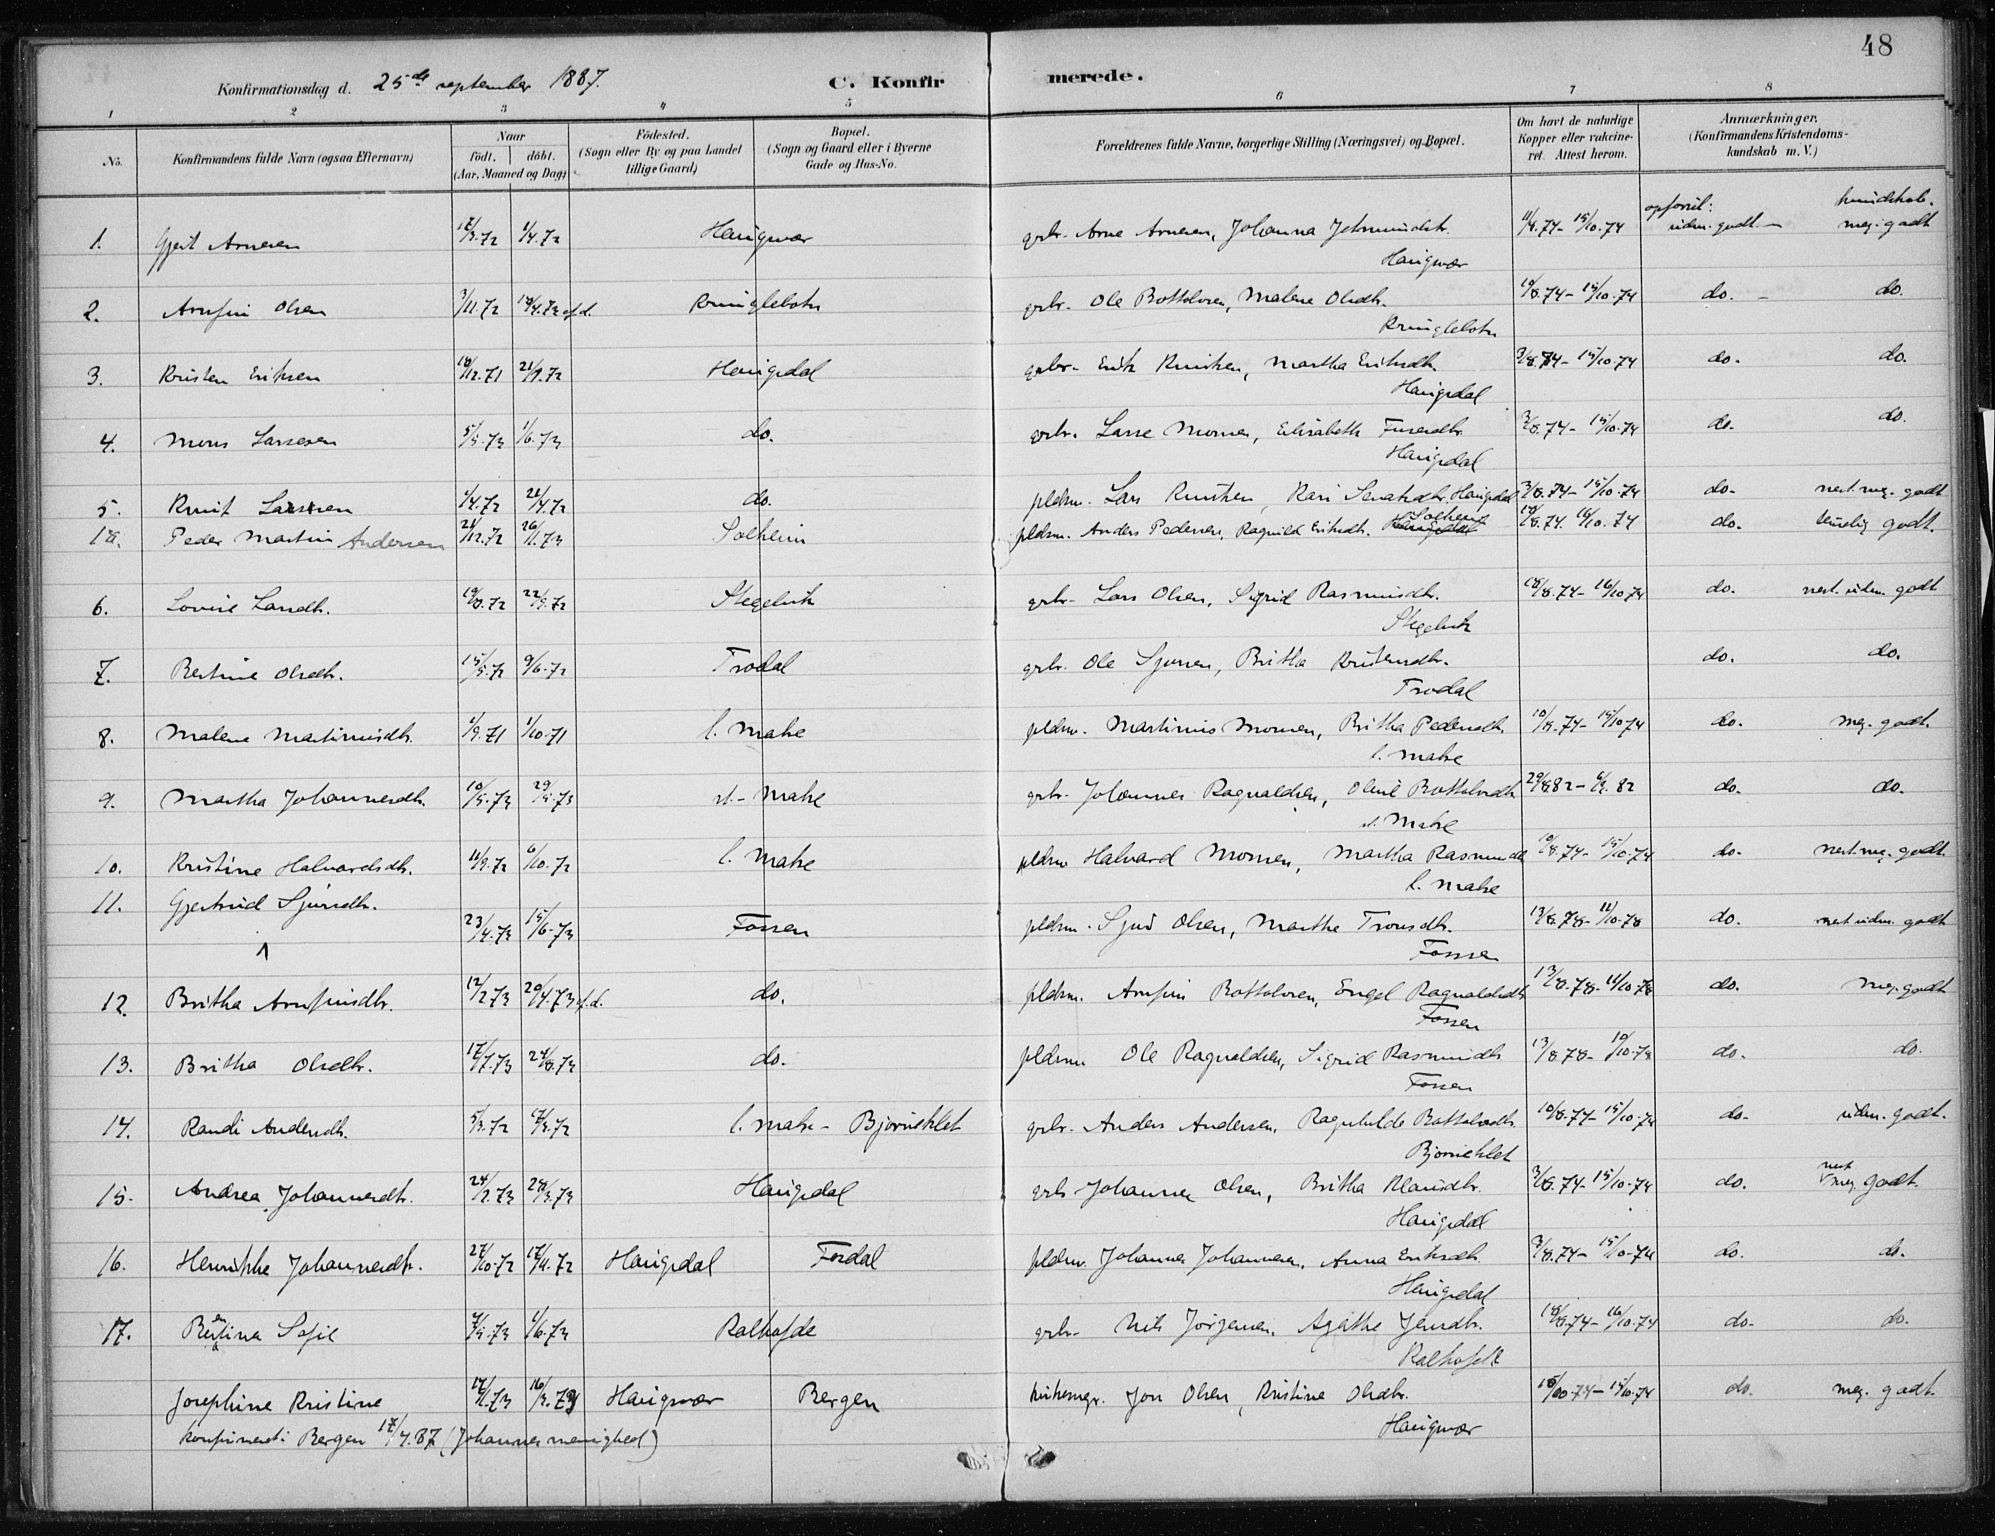 48
Konfirmationsdag d. 25de september 1887. C. Konfirmerede.
1 2 3 4 5 6 7 8
No. Konfirmandens fulde Navn (ogsaa Efternavn) Naar født. døbt. (Aar, Maaned og Dag) Födested. (Sogn eller By og paa Landet tillige Gaard) Bopæl. (Sogn og Gaard eller i Byerne Gade og Hus-No. Forældrenes fulde Navne, borgerlige Stilling (Næringsvei) og Bopæl. Om havt de naturlige Kopper eller vakcineret. Attest herom. Anmærkninger. (Konfirmandens Kristendomskundskab m. V.)
opførsel: kundskab.
1. Gjert Arnesen 12/3.72 1/4.72 Haugsvær grbr. Arne Arnesen, Johanna Jetmundsdtr. 11/8.74 - 15/10.74 udm. godt - meg. godt
Haugsvær
2. Arnfin Olsen 3/11.72 14/4.73 f.d. Kringlebotn grbr. Ole Bottolvsen, Malene Olsdtr. 10/8.74 - 15/10.74 do. - do.
Kringlebotn
3. Kristen Eriksen 18/12.71 21/1.72 Haugsdal grbr. Erik Knutsen, Martha Eriksdtr. 3/8.74 - 15/10.74 do. do.
Haugsdal
4. Mons Larsesen 5/5.73 1/6.73 do. grbr. Larse Monsen, Elisabeth 3/8.74 - 15/10.74 do. do.
Haugsdal
5. Knut Larsen 1/4.72 21/4.72 do. pldsm. Lars Knutsen, Kari Haugsdal 3/8.74 - 15/10.74 do. nest. meg. godt
18. Peder Martin Andersen 21/12.72 26/1.73 Solheim pldsm. Anders Pedersen, Ragnild Eriksdtr. Haugsdal Solheim 18/8.74 16/10.74 do. temelig godt.
6. Lovise Larsdtr. 19/8.72 22/9.72 Stegelvik grbr. Lars Olsen, Sigrid Rasmusdtr. 18/8.74 - 16/10.74 do. nest. udm. godt
Stegelvik
7. Bertine Olsdtr. 15/5.72 9/6.72 Trodal grbr. Ole Sjursen, Britha Kristensdtr. do. do.
Trodal
8. Malene Martinusdtr. 1/9.71 1/10.71 l. Matre pldsm. Martinus Monsen, Britha Pedersdtr. 10/8.74 - 15/10.74 do. meg. godt
l. Matre
9. Martha Johannesdtr. 10/5.73 29/5.73 st. - Matre grbr. Johannes Ragnaldsen, Oline Bottolvsdtr. 29/8.82 - 6/9.82 do. do.
st. Matre
10. Kristine Halvardsdtr. 11/9.72 6/10.72 l. Matre pldsm. Halvard Monsen, Martha Rasmusdtr. 10/8.74 - 15/10.74 do. nest. meg. godt.
l. Matre
11. Gjertrud Sjursdtr. 23/4.73 15/6.73 Fossen pldsm. Sjur Olsen, Marthe Tronsdtr. 13/8.78 - 11/10.78 do. nest udm. godt
Fossen
12. Britha Arnfinsdtr. 12/2.73 20/4.73 f.d. do. pldsm. Arnfin Bottolvsen, Engel Ragnaldsdtr. 13/8.78 - 11/10.78 do. meg. godt
Fossen
13. Britha Olsdtr. 17/7.73 24/8.73 do. pldsm. Ole Ragnaldsen, Sigrid Rasmusdtr. 13/8.78 - 10/10.78 do. do.
Fossen
14. Randi Andersdtr. 5/3.72 17/3.72 l. Matre - Bjørneklet grbr. Anders Andersen, Ragnhilde Bottolvsdtr. 10/8.74 - 15/10.74 do. udm. godt.
Bjørneklet
15. Andrea Johannesdtr. 24/2.73 23/3.73 Haugsdal grbr. Johannes Olsen, Britha Klausdtr. 3/8.74 - 15/10.74 do. nest meg. godt.
Haugsdal
16. Henrikke Johannesdtr. 27/10.72 17/11.72 Haugsdal Fordal pldsm. Johannes Johannesen, Anna Eriksdtr. 3/8.74 - 15/10.74 do. do.
Haugsdal
17. Bertina Sofie 7/5.73 1/6.73 Kalhofde grbr. Nils Jørgensen, Agathe Jensdtr. 18/8.74 - 16/10.74 do. do.
Kalhofde
Josephine Kristine 17/1.73 16/3.73 Haugsvær Bergen kirkesgr. Jon Olsen, Kristine Olsdtr. 15/10.74 do. meg. godt
konfirmeret i Bergen 17/4.87 (Johannes menighed) Haugsvær